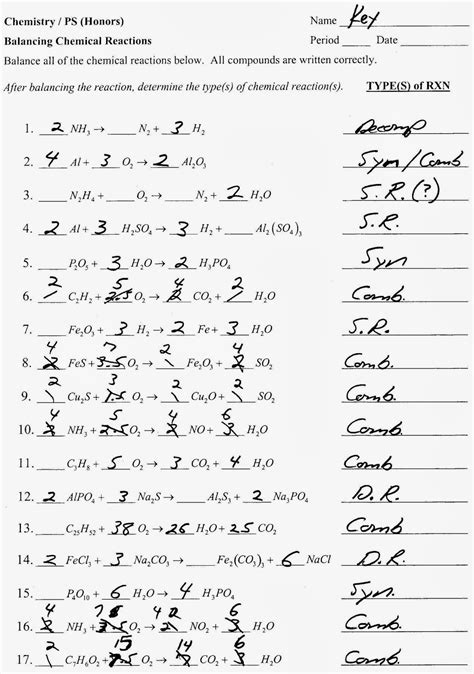 Chemistry / PS (Honors) Name Key
Balancing Chemical Reactions Period ____ Date ____
Balance all of the chemical reactions below. All compounds are written correctly.
After balancing the reaction, determine the type(s) of chemical reaction(s). TYPE(S) of RXN
1. 2 NH₃ → ___ N₂ + 3 H₂ Decomp
2. 4 Al + 3 O₂ → 2 Al₂O₃ Syn/Comb
3. ___ N₂H₄ + ___ O₂ → ___ N₂ + 2 H₂O S.R.(?)
4. 2 Al + 3 H₂SO₄ → 3 H₂ + ___ Al₂(SO₄)₃ S.R.
5. ___ P₂O₅ + 3 H₂O → 2 H₃PO₄ Syn
6. 2 C₂H₂ + 5 O₂ → 4 CO₂ + 2 H₂O Comb.
7. ___ Fe₂O₃ + 3 H₂ → 2 Fe + 3 H₂O S.R.
8. 4 FeS + 7 O₂ → 2 Fe₂O₃ + 4 SO₂ Comb.
9. 2 Cu₂S + 3 O₂ → 2 Cu₂O + 2 SO₂ Comb.
10. 4 NH₃ + 5 O₂ → 4 NO + 6 H₂O Comb.
11. ___ C₃H₈ + 5 O₂ → 3 CO₂ + 4 H₂O Comb
12. 2 AlPO₄ + 3 Na₂S → ___ Al₂S₃ + 2 Na₃PO₄ D.R.
13. ___ C₂₅H₅₂ + 38 O₂ → 26 H₂O + 25 CO₂ Comb
14. 2 FeCl₃ + 3 Na₂CO₃ → ___ Fe₂(CO₃)₃ + 6 NaCl D.R.
15. ___ P₄O₁₀ + 6 H₂O → 4 H₃PO₄ Syn.
16. 4 NH₃ + 7 O₂ → 4 NO₂ + 6 H₂O Comb.
17. 2 C₇H₆O₂ + 15 O₂ → 14 CO₂ + 6 H₂O Comb.